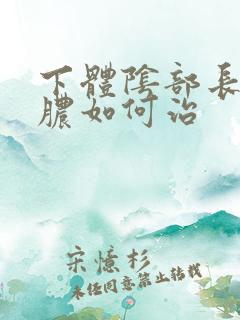 下體陰部長
膿如何治
宋憶杉
未經同意禁止轉載